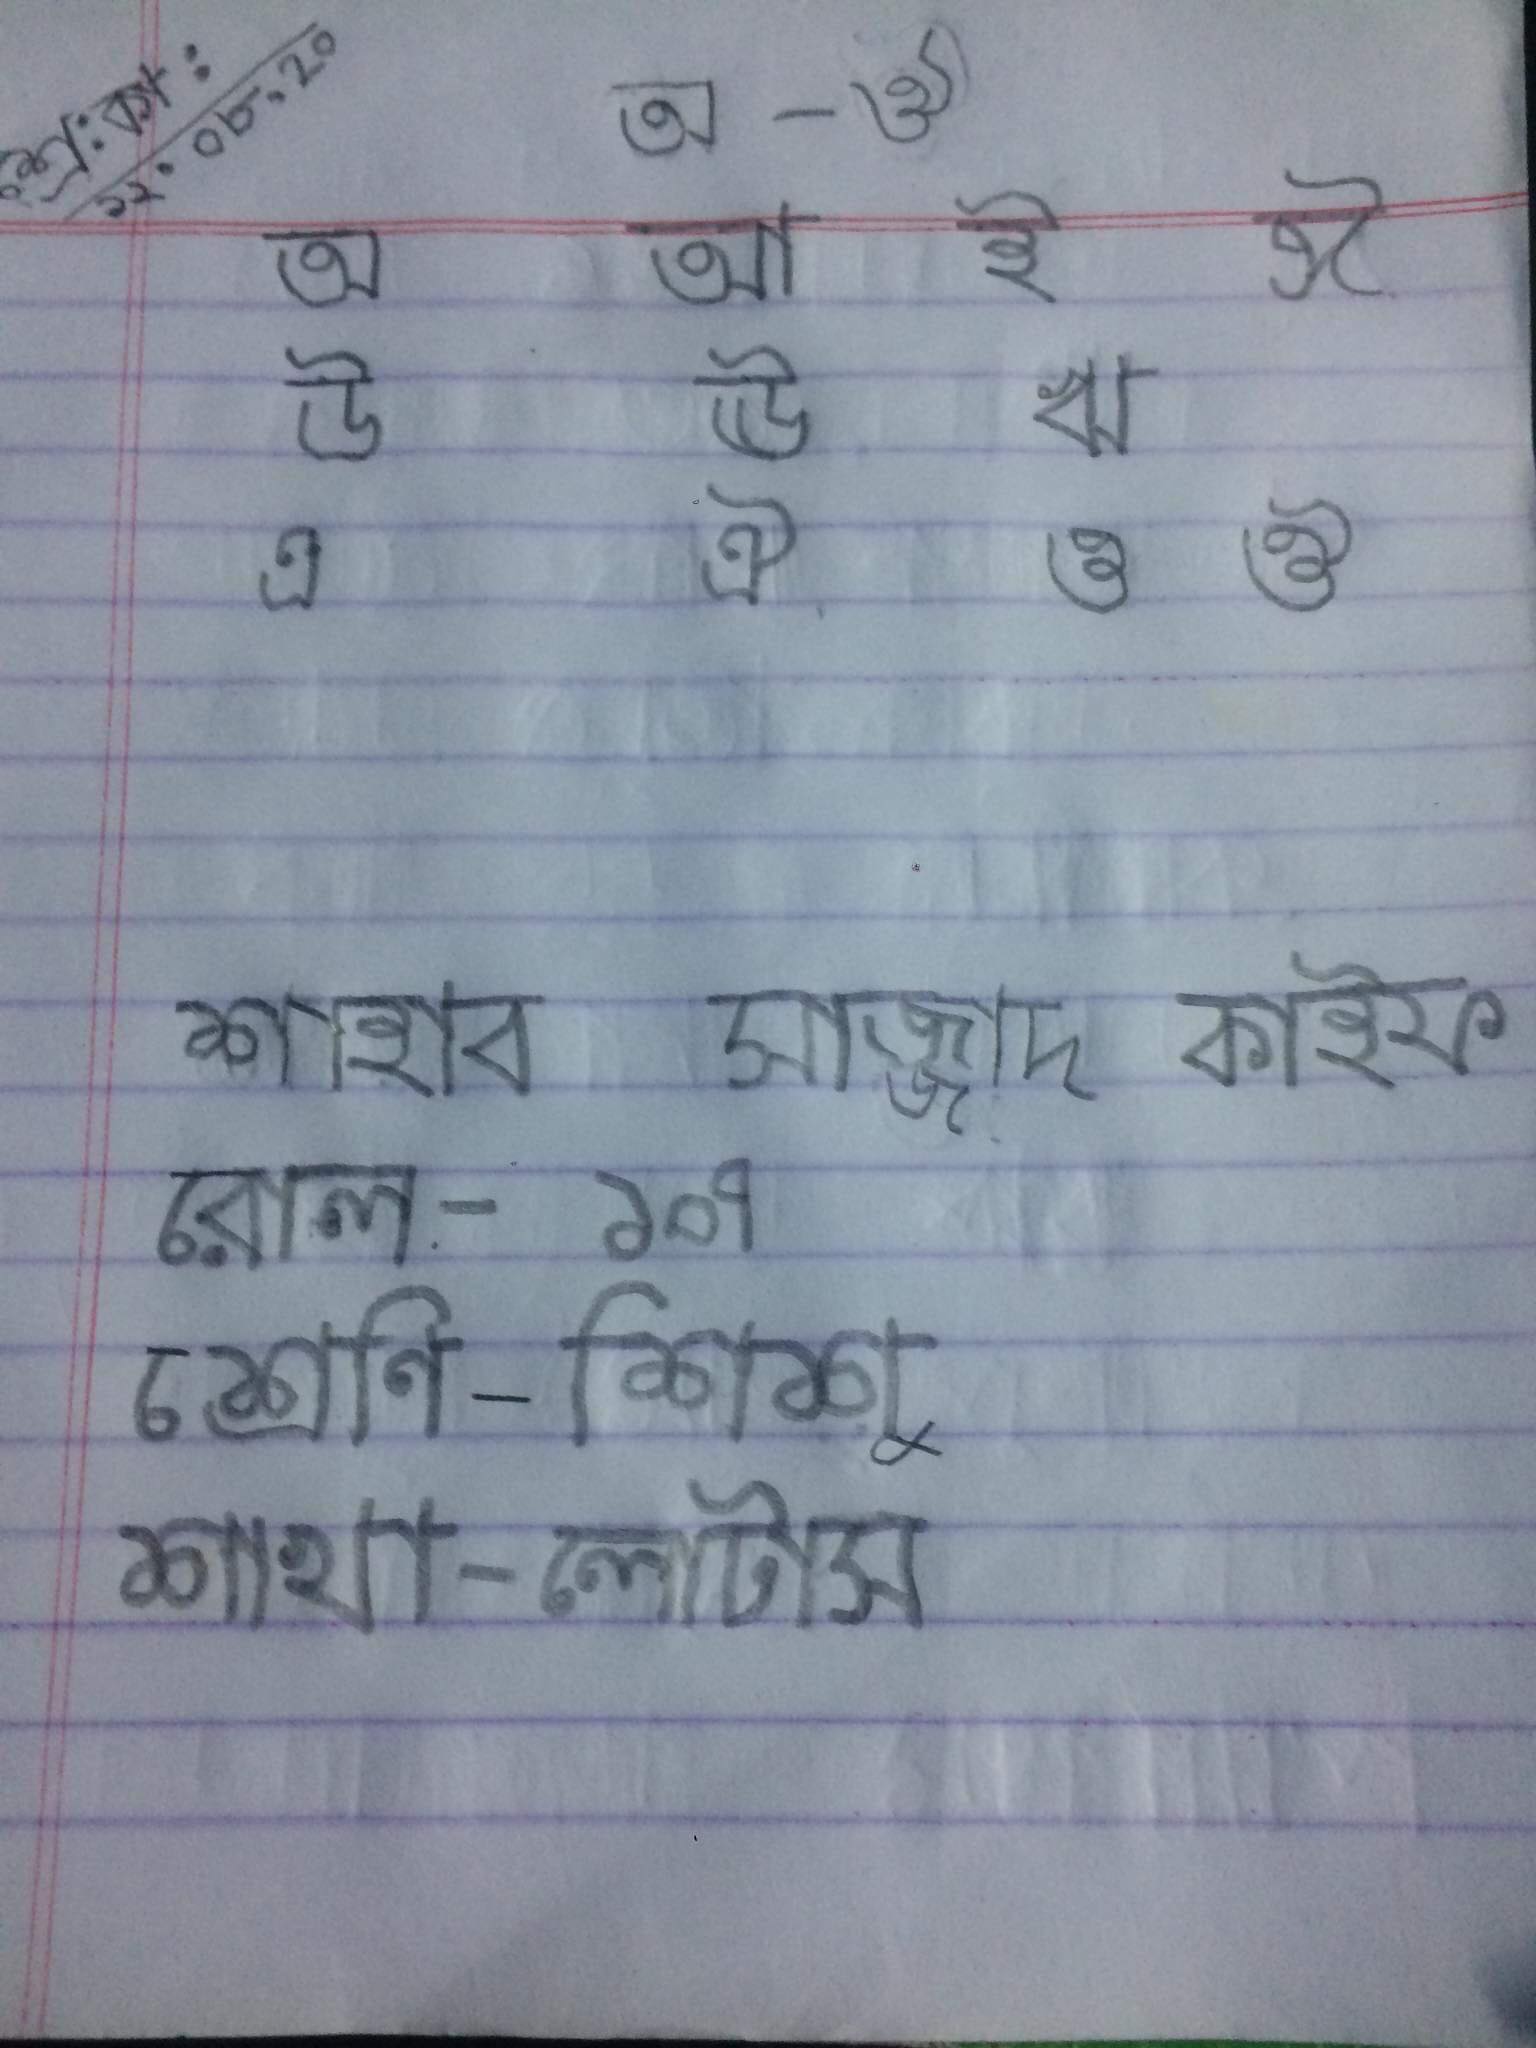 শ্রে:কা:
১২.০৮.২০
অ - ঔ
অ আ ই ঈ
উ ঊ ঋ
এ ঐ ও ঔ
শাহাব সাজ্জাদ কাইফ
রোল - ১০৭
শ্রেণি - শিশু
শাখা - লোটাস